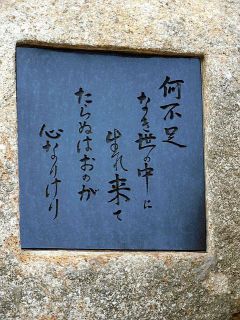 何不足
なき世の中に
生れ来て
たらぬはおのが
心なりけり